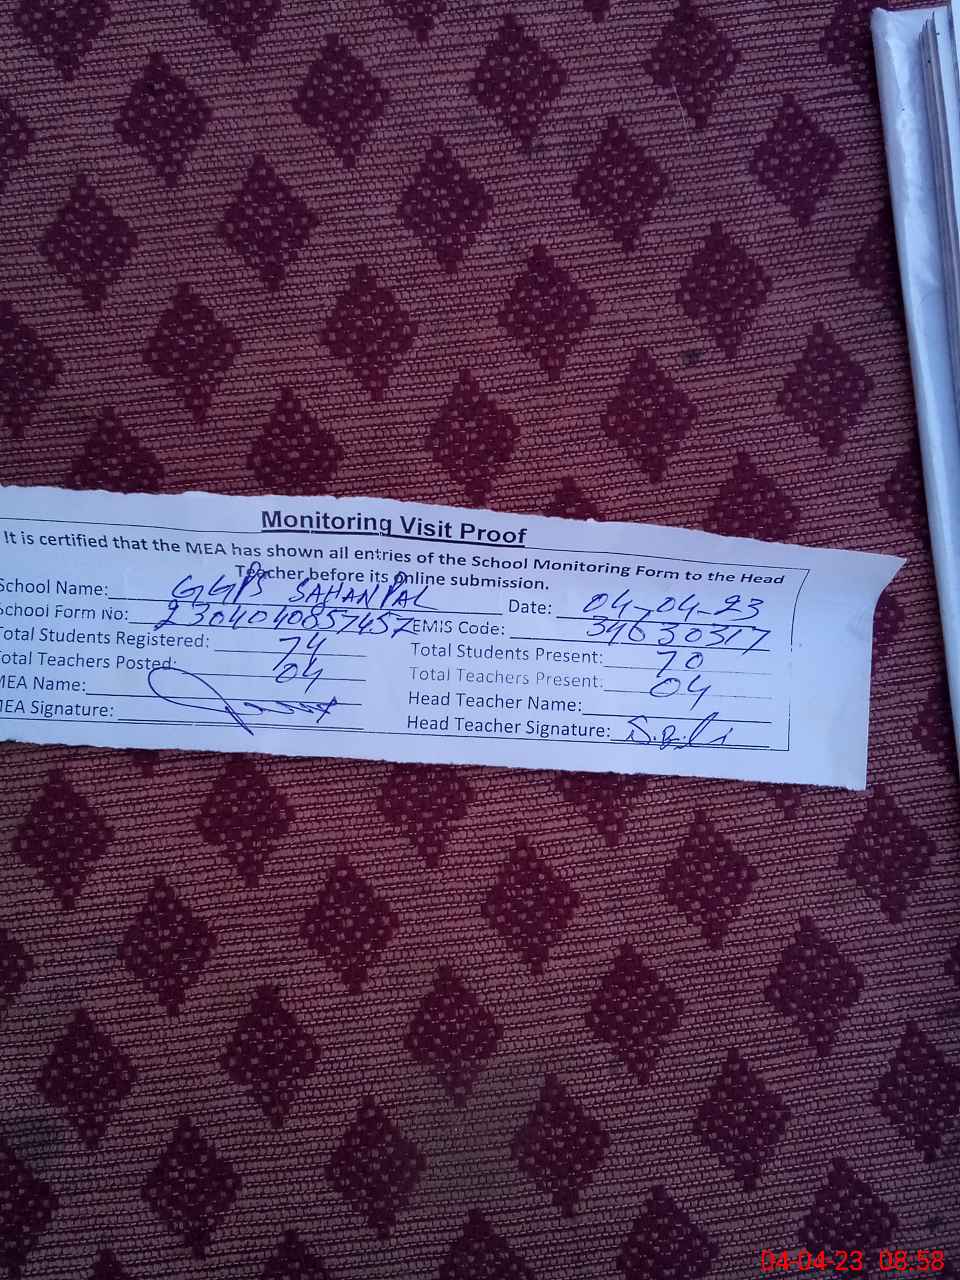 Monitoring Visit Proof
It is certified that the MEA has shown all entries of the School Monitoring Form to the Head
Teacher before its online submission.
School Name: GGPS SAHANPAL Date: 04-04-23
School Form No: 2304040857457 EMIS Code: 34630317
Total Students Registered: 74 Total Students Present: 70
Total Teachers Posted: 04 Total Teachers Present: 04
MEA Name: Head Teacher Name:
MEA Signature: Head Teacher Signature:
04-04-23 08:58